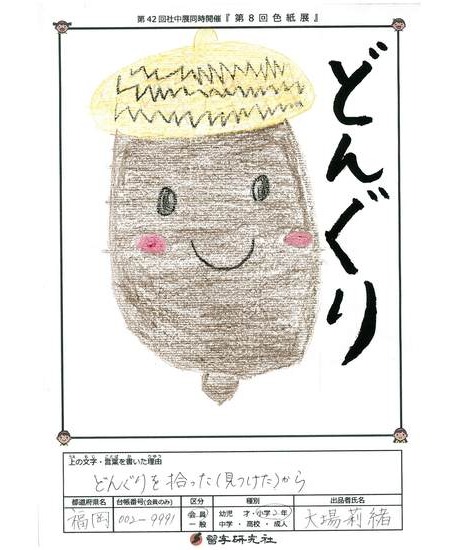 第42回社中展同時開催『第8回色紙展』
どんぐり
上の文字・言葉を書いた理由
どんぐりを拾った(見つけた)から
都道府県名 台帳番号(会員のみ) 区分 種別 出品者氏名
福岡 002-9991 会員 幼児 才・小学2年 大場莉緒
一般 中学・高校・成人
習字研究社